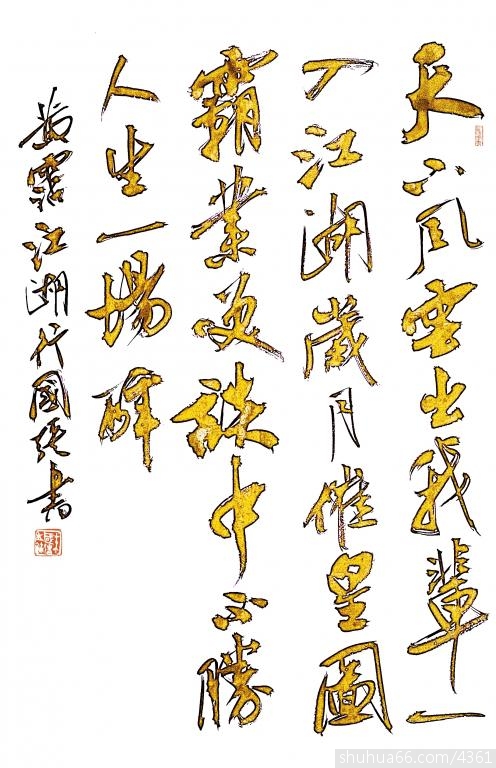 天下风雲出我輩一
入江湖歲月催皇圖
霸業笑談中不勝
人生一場醉
黄霑江湖代國書
shuhua66.com/4361